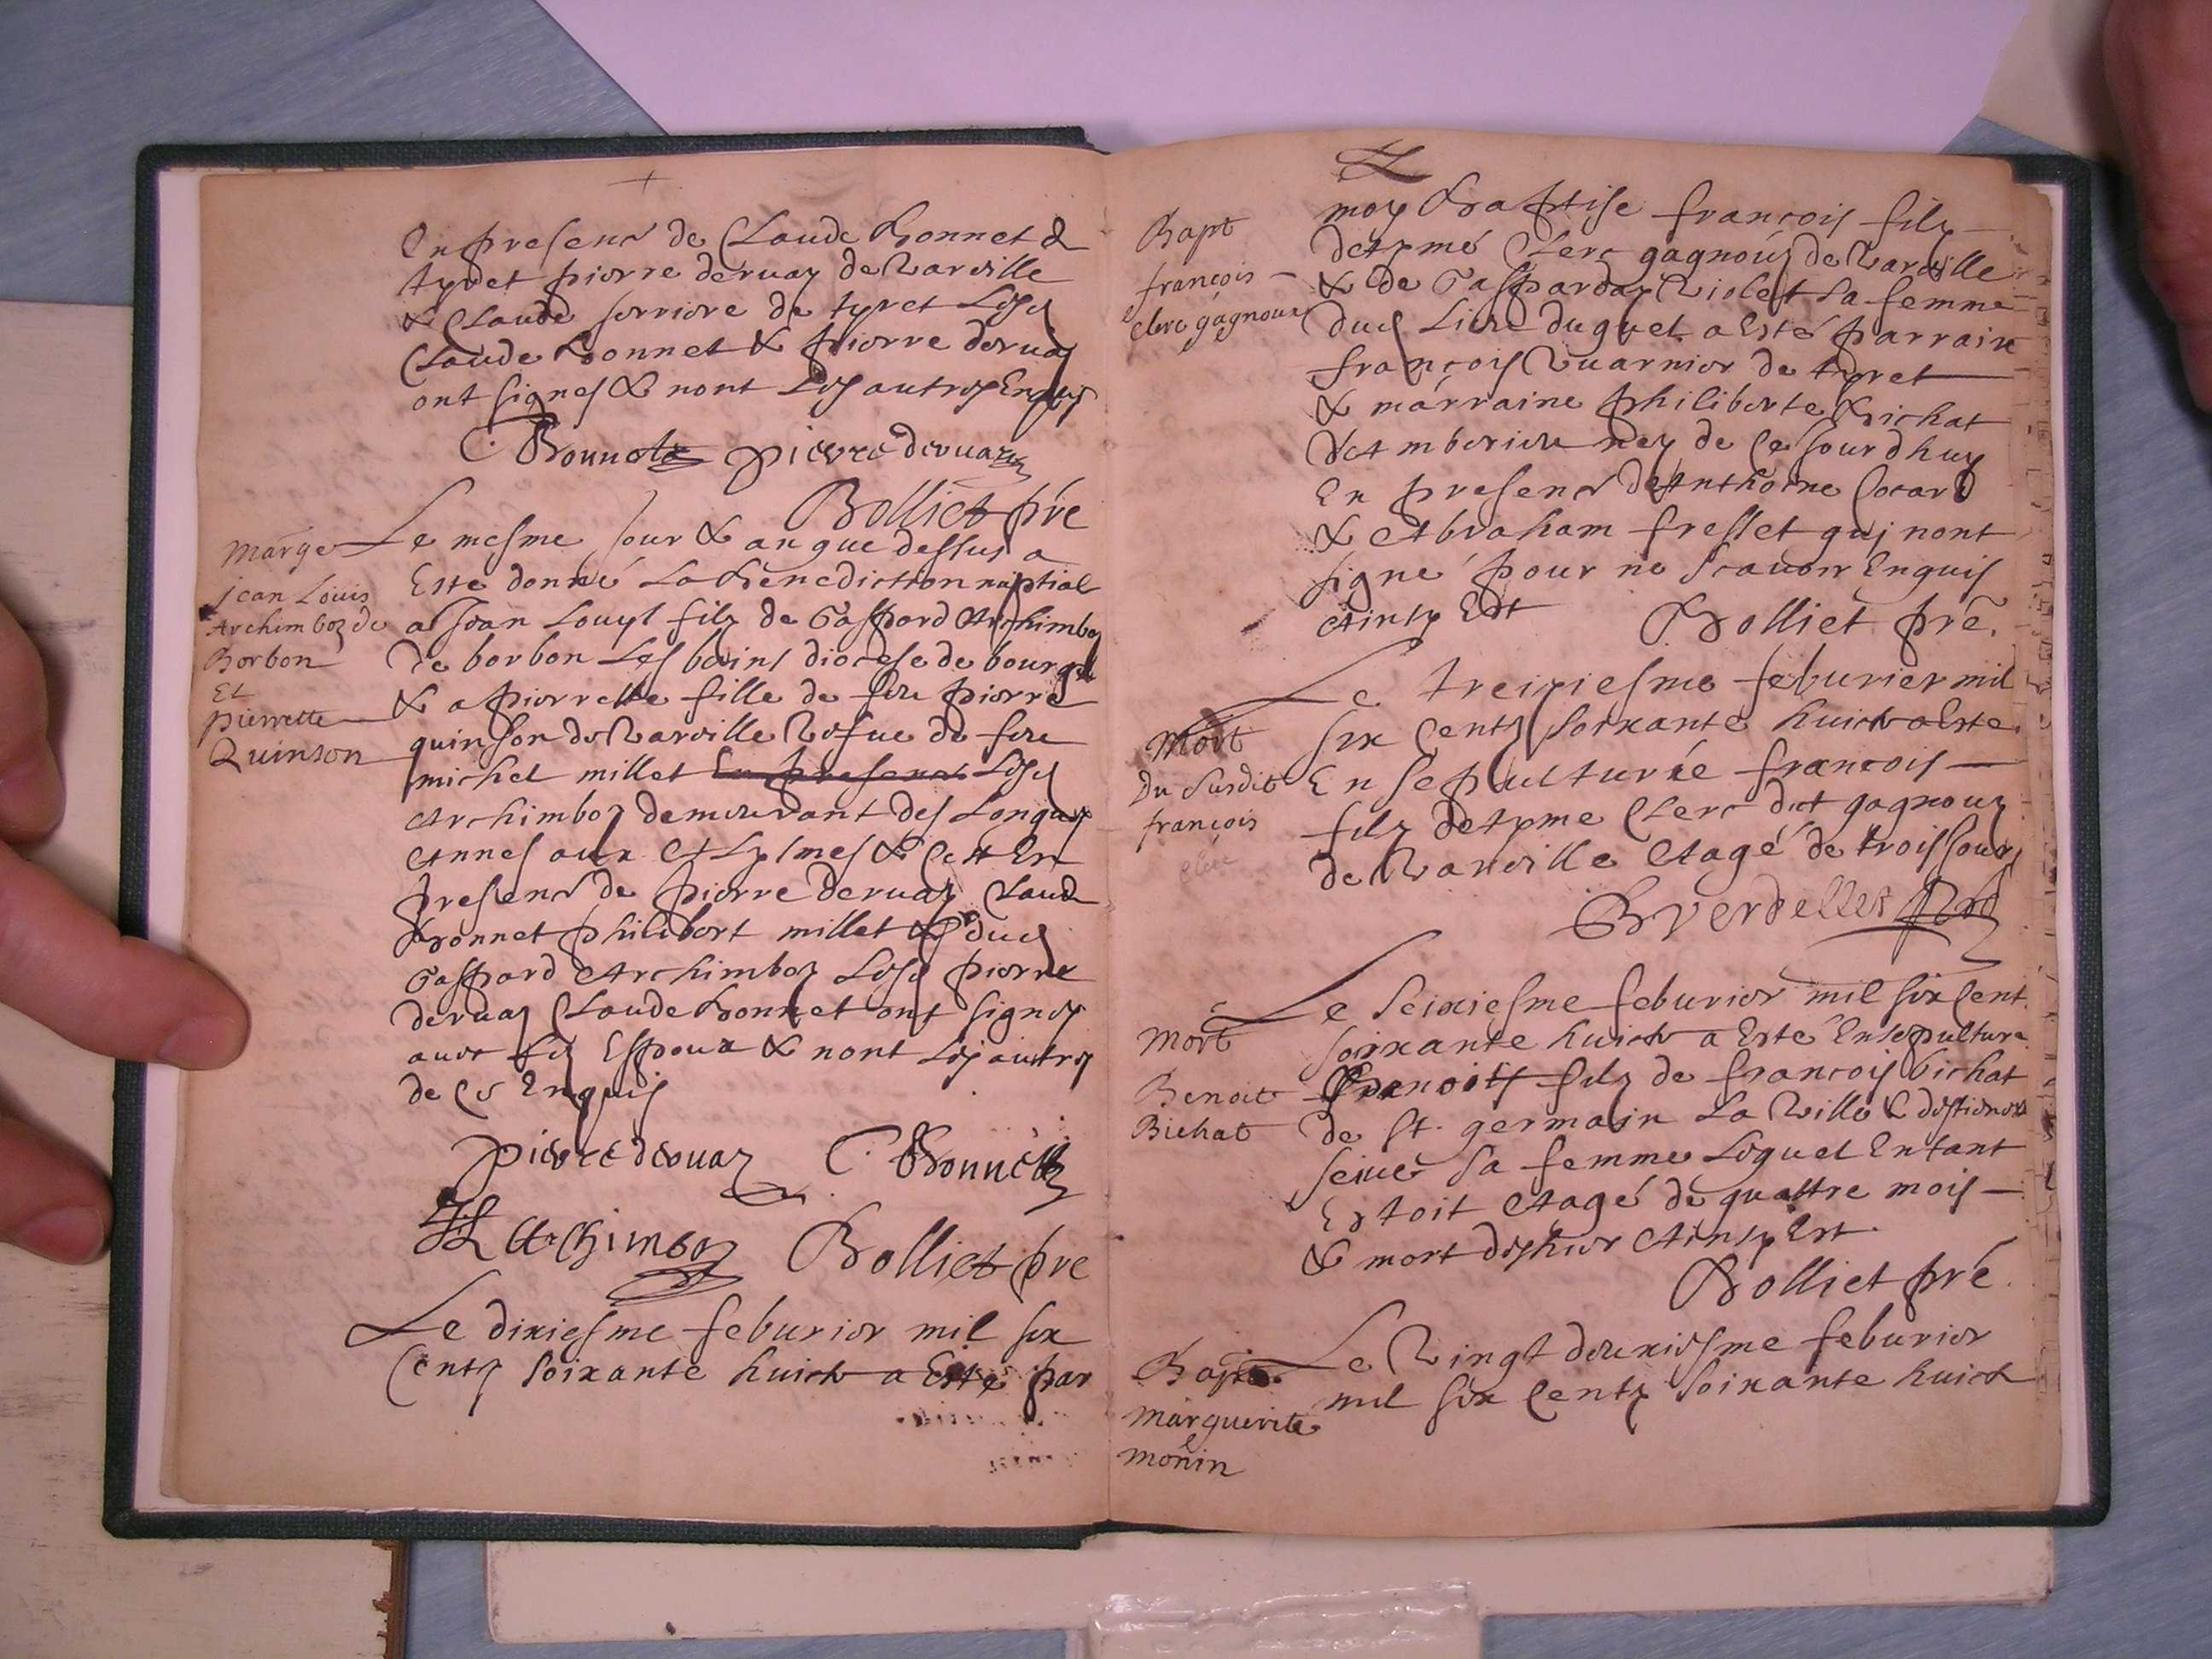 En presence de Claude Bonnet &
tyret pierre deruaz de Varville
& Claude ferriere de tyret Lesd
Claude Bonnet & pierre deruaz
ont signes & nont Les autres Enquis
C. Bonnet pierre deruaz
Bolliet pre
Marge
jean Louis
Archimboz de
Borbon
Et
pierrette
Quinson
Le mesme jour & an que dessus a
Este donné La benediction nuptial
a Jean Louys filz de Gaspard Archimboz
de borbon Les bains diocese de bourges
& a pierrette fille de feu pierre
quinson de Varville Vefue de feu
michel millet En presence Lesd
Archimboz demeurant des Longues
Annes aux & Cett En
presence de pierre deruaz Claude
bonnet philibert millet & dud
Gaspard Archimboz Lesd pierre
deruaz Claude bonnet ont signes
auec Les Espoux & nont Les autres
de Ce Enquis
pierre deruaz C. Bonnet
Archimboz Bolliet pre
Le dixiesme feburier mil six
Centz soixante huict a Este par
Bapt
françois
clerc gagnoux
moy Baptise françois filz
detyme Clerc gagnouz de Varville
& de Gasparday Violet sa femme
dud Lieu duquel a Esté parrain
françois Vuarnier de tyret
& marraine philiberte Bichat
dAmberieu nez de Ce Jourdhuy
En presence deAnthoine Cocard
& Abraham fresset quj nont
signé pour ne Scauoir Enquis
Ainsy Est Bolliet pre.
Mort
Du Susdit
françois
clerc
Le treiziesme feburier mil
six Centz soixante huict a Este
Ensepulturée françois
filz detyme Clerc dict gagnouz
de Varville Aagé de trois Jours
B Verdellet pbr
Mort
Benoit
Bichat
Le seiziesme feburier mil six Cent
soixante huict a Esté Ensepulture
Benoits filz de françois bichat
de St. germain La Ville & destienne
seiue sa femme Lequel Enfant
Estoit Aagé de quattre mois
& mort dyhier Ainsy Est
Bolliet pré.
Bapt.
marguerite
monin
Le Vingt deuxiesme feburier
mil six Centz soixante huict